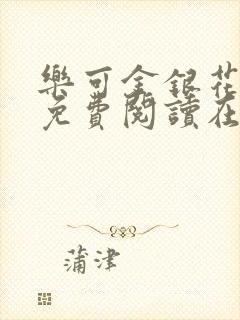 樂可金銀花
免費閱讀在
蒲津